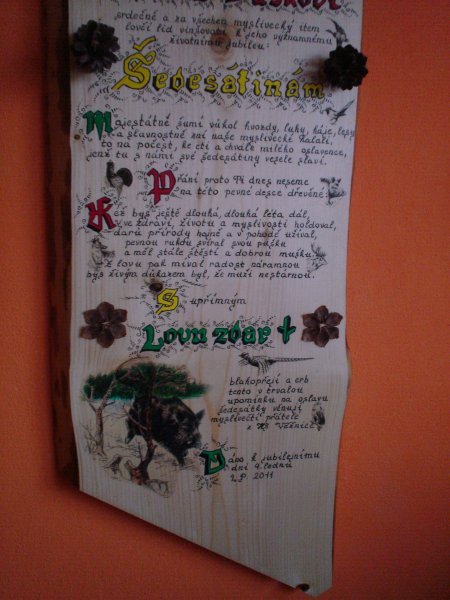 srdečně a za všechen myslivecký item
lovčí lid vinšovati k jeho významnému
životnímu jubileu.
Šedesátinám
Majestátně šumí vůkol hvozdy, luhy, háje, lesy
a slavnostně zní naše myslivecké halali,
to na počest, ke cti a chvále milého oslavence,
jenž tu s námi své šedesátiny vesele slaví.
Přání proto Ti dnes neseme
na této pevné desce dřevěné:
Kéž bys ještě dlouhá, dlouhá léta dál,
ve zdraví, životu a myslivosti holdoval,
darů přírody hojně a v pohodě užíval,
pevnou rukou svíral svou pušku
a měl stále štěstí a dobrou mušku.
Z lovu pak míval radost náramnou
bys živým důkazem byl, že muži nestárnou.
S upřímným
Lovu zdar
blahopřejí a erb
tento v trvalou
upomínku na oslavu
šedesátky věnují
myslivečtí přátelé
z MS
Dáno k jubilejnímu
dni 9. lednu
L.P. 2011